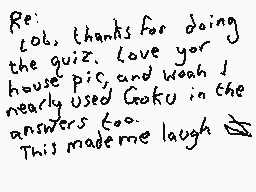 Re:
LOL, thanks for doing
the quiz. Love yor
house pic, and woah I
nearly used Goku in the
answers too.
This made me laugh